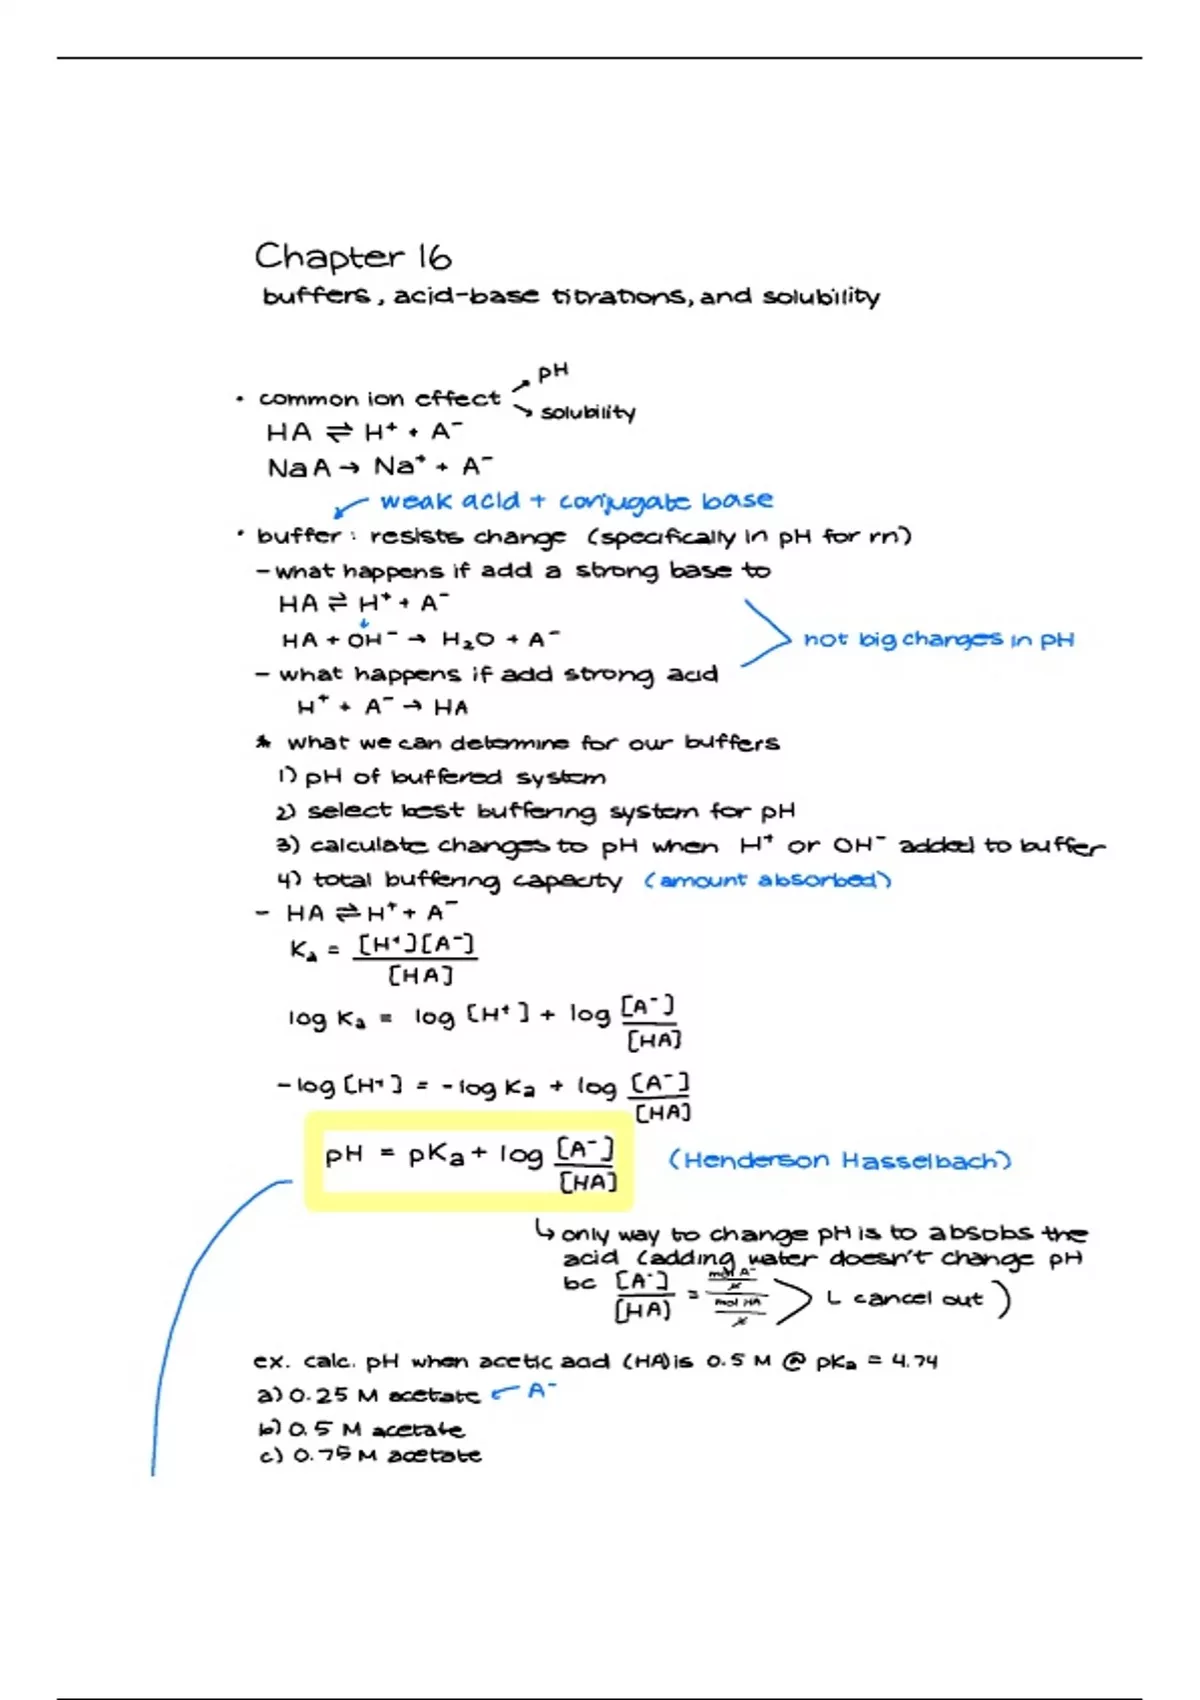 Chapter 16
buffers, acid-base titrations, and solubility
• common ion effect → pH
→ solubility
HA ⇌ H⁺ + A⁻
NaA → Na⁺ + A⁻
weak acid + conjugate base
• buffer: resists change (specifically in pH for rn)
- what happens if add a strong base to
HA ⇌ H⁺ + A⁻
HA + OH⁻ → H₂O + A⁻
not big changes in pH
- what happens if add strong acid
H⁺ + A⁻ → HA
* what we can determine for our buffers
1) pH of buffered system
2) select best buffering system for pH
3) calculate changes to pH when H⁺ or OH⁻ added to buffer
4) total buffering capacity (amount absorbed)
- HA ⇌ H⁺ + A⁻
Ka = [H⁺][A⁻] / [HA]
log Ka = log [H⁺] + log [A⁻] / [HA]
-log [H⁺] = -log Ka + log [A⁻] / [HA]
pH = pKa + log [A⁻] / [HA] (Henderson Hasselbach)
↳ only way to change pH is to absobs the
acid (adding water doesn't change pH
bc [A⁻] / [HA) = mol A⁻ / mol HA > L cancel out)
ex. calc. pH when acetic acid (HA) is 0.5 M @ pKa = 4.74
a) 0.25 M acetate ← A⁻
b) 0.5 M acetate
c) 0.75 M acetate